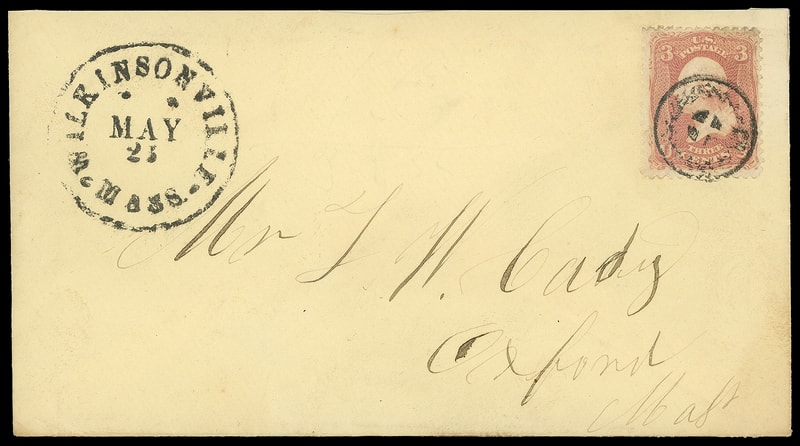 WILKINSONVILLE · MASS ·
MAY
25
U.S.
POSTAGE
3 3
THREE
CENTS
Mr L W. Cady
Oxford
Mass